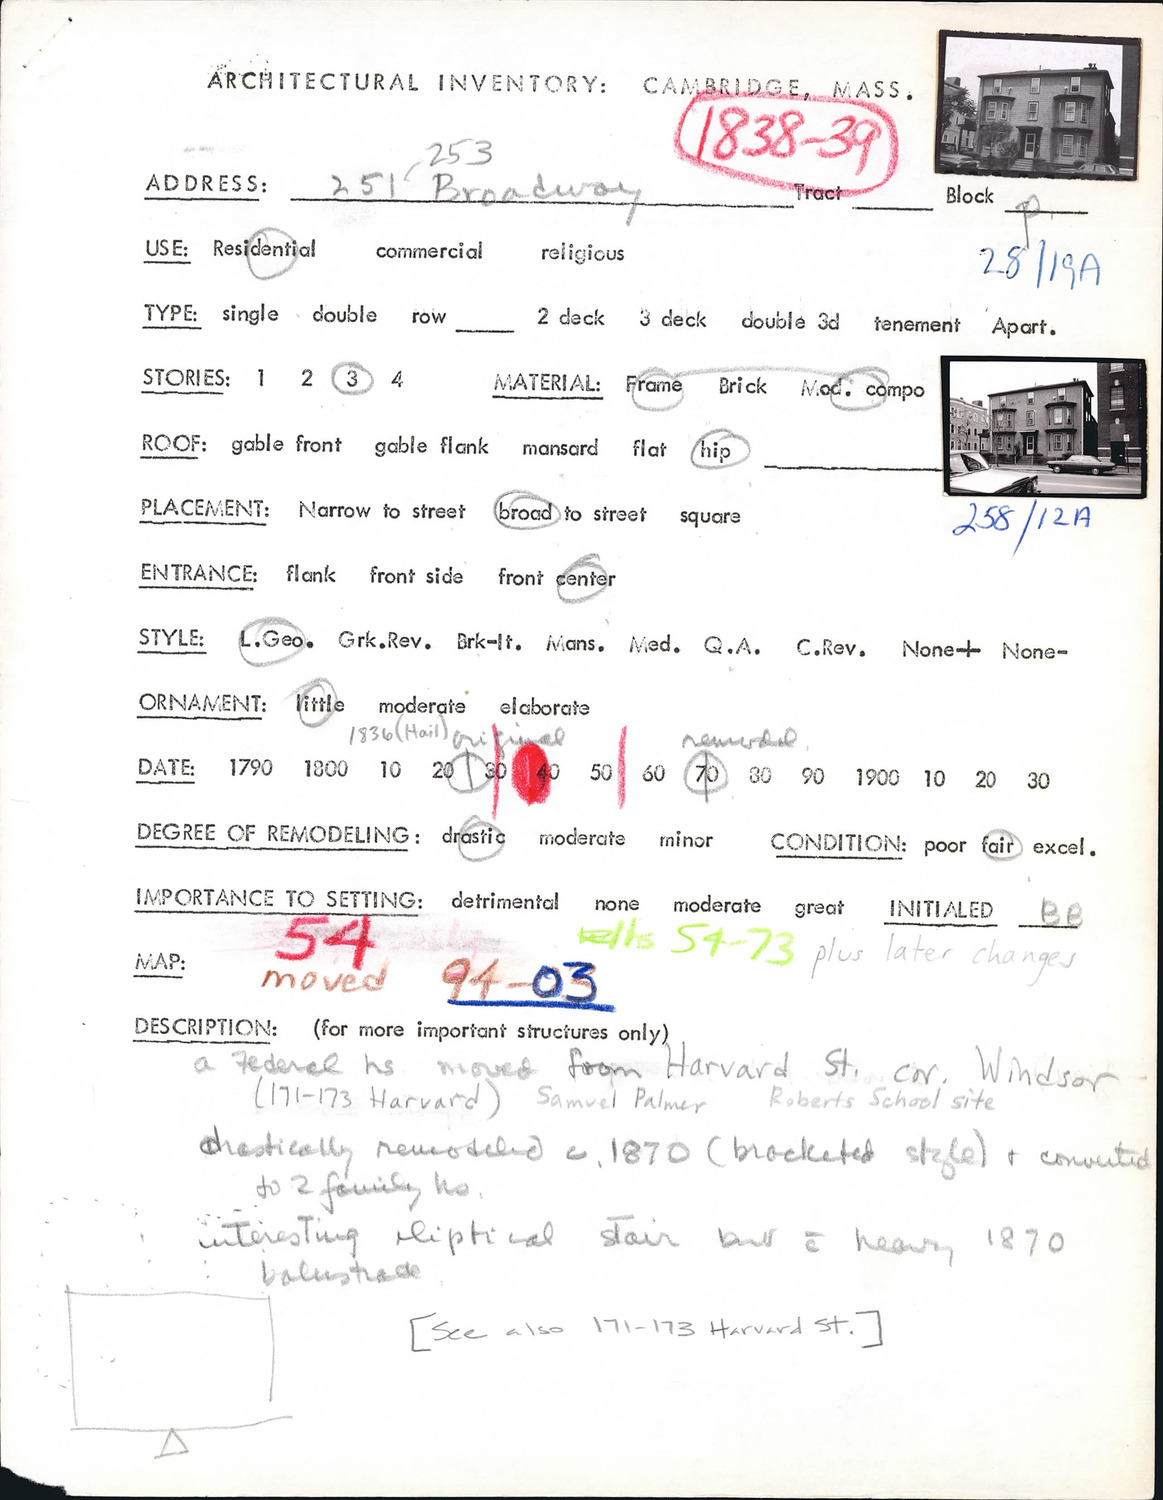 ARCHITECTURAL INVENTORY: CAMBRIDGE, MASS.
1838-39
253
ADDRESS: 251 Broadway Tract Block p.
28/19A
USE: Residential commercial religious
TYPE: single double row 2 deck 3 deck double 3d tenement Apart.
STORIES: 1 2 3 4 MATERIAL: Frame Brick Mod. compo
ROOF: gable front gable flank mansard flat hip
PLACEMENT: Narrow to street broad to street square
258/12A
ENTRANCE: flank front side front center
STYLE: L.Geo. Grk.Rev. Brk-It. Mans. Med. Q.A. C.Rev. None+ None-
ORNAMENT: little moderate elaborate
1836 (Hail) original remodel.
DATE: 1790 1800 10 20 30 40 50 60 70 80 90 1900 10 20 30
DEGREE OF REMODELING: drastic moderate minor CONDITION: poor fair excel.
IMPORTANCE TO SETTING: detrimental none moderate great INITIALED BB
54 54-73 plus later changes
MAP: moved 94-03
DESCRIPTION: (for more important structures only)
a Federal hs moved from Harvard St. cor. Windsor
(171-173 Harvard) Samuel Palmer Roberts School site
drastically remodeled c. 1870 (bracketed style) + converted
to 2 family hs.
interesting eliptical stair but c̄ heavy 1870
balustrade
[See also 171-173 Harvard St.]